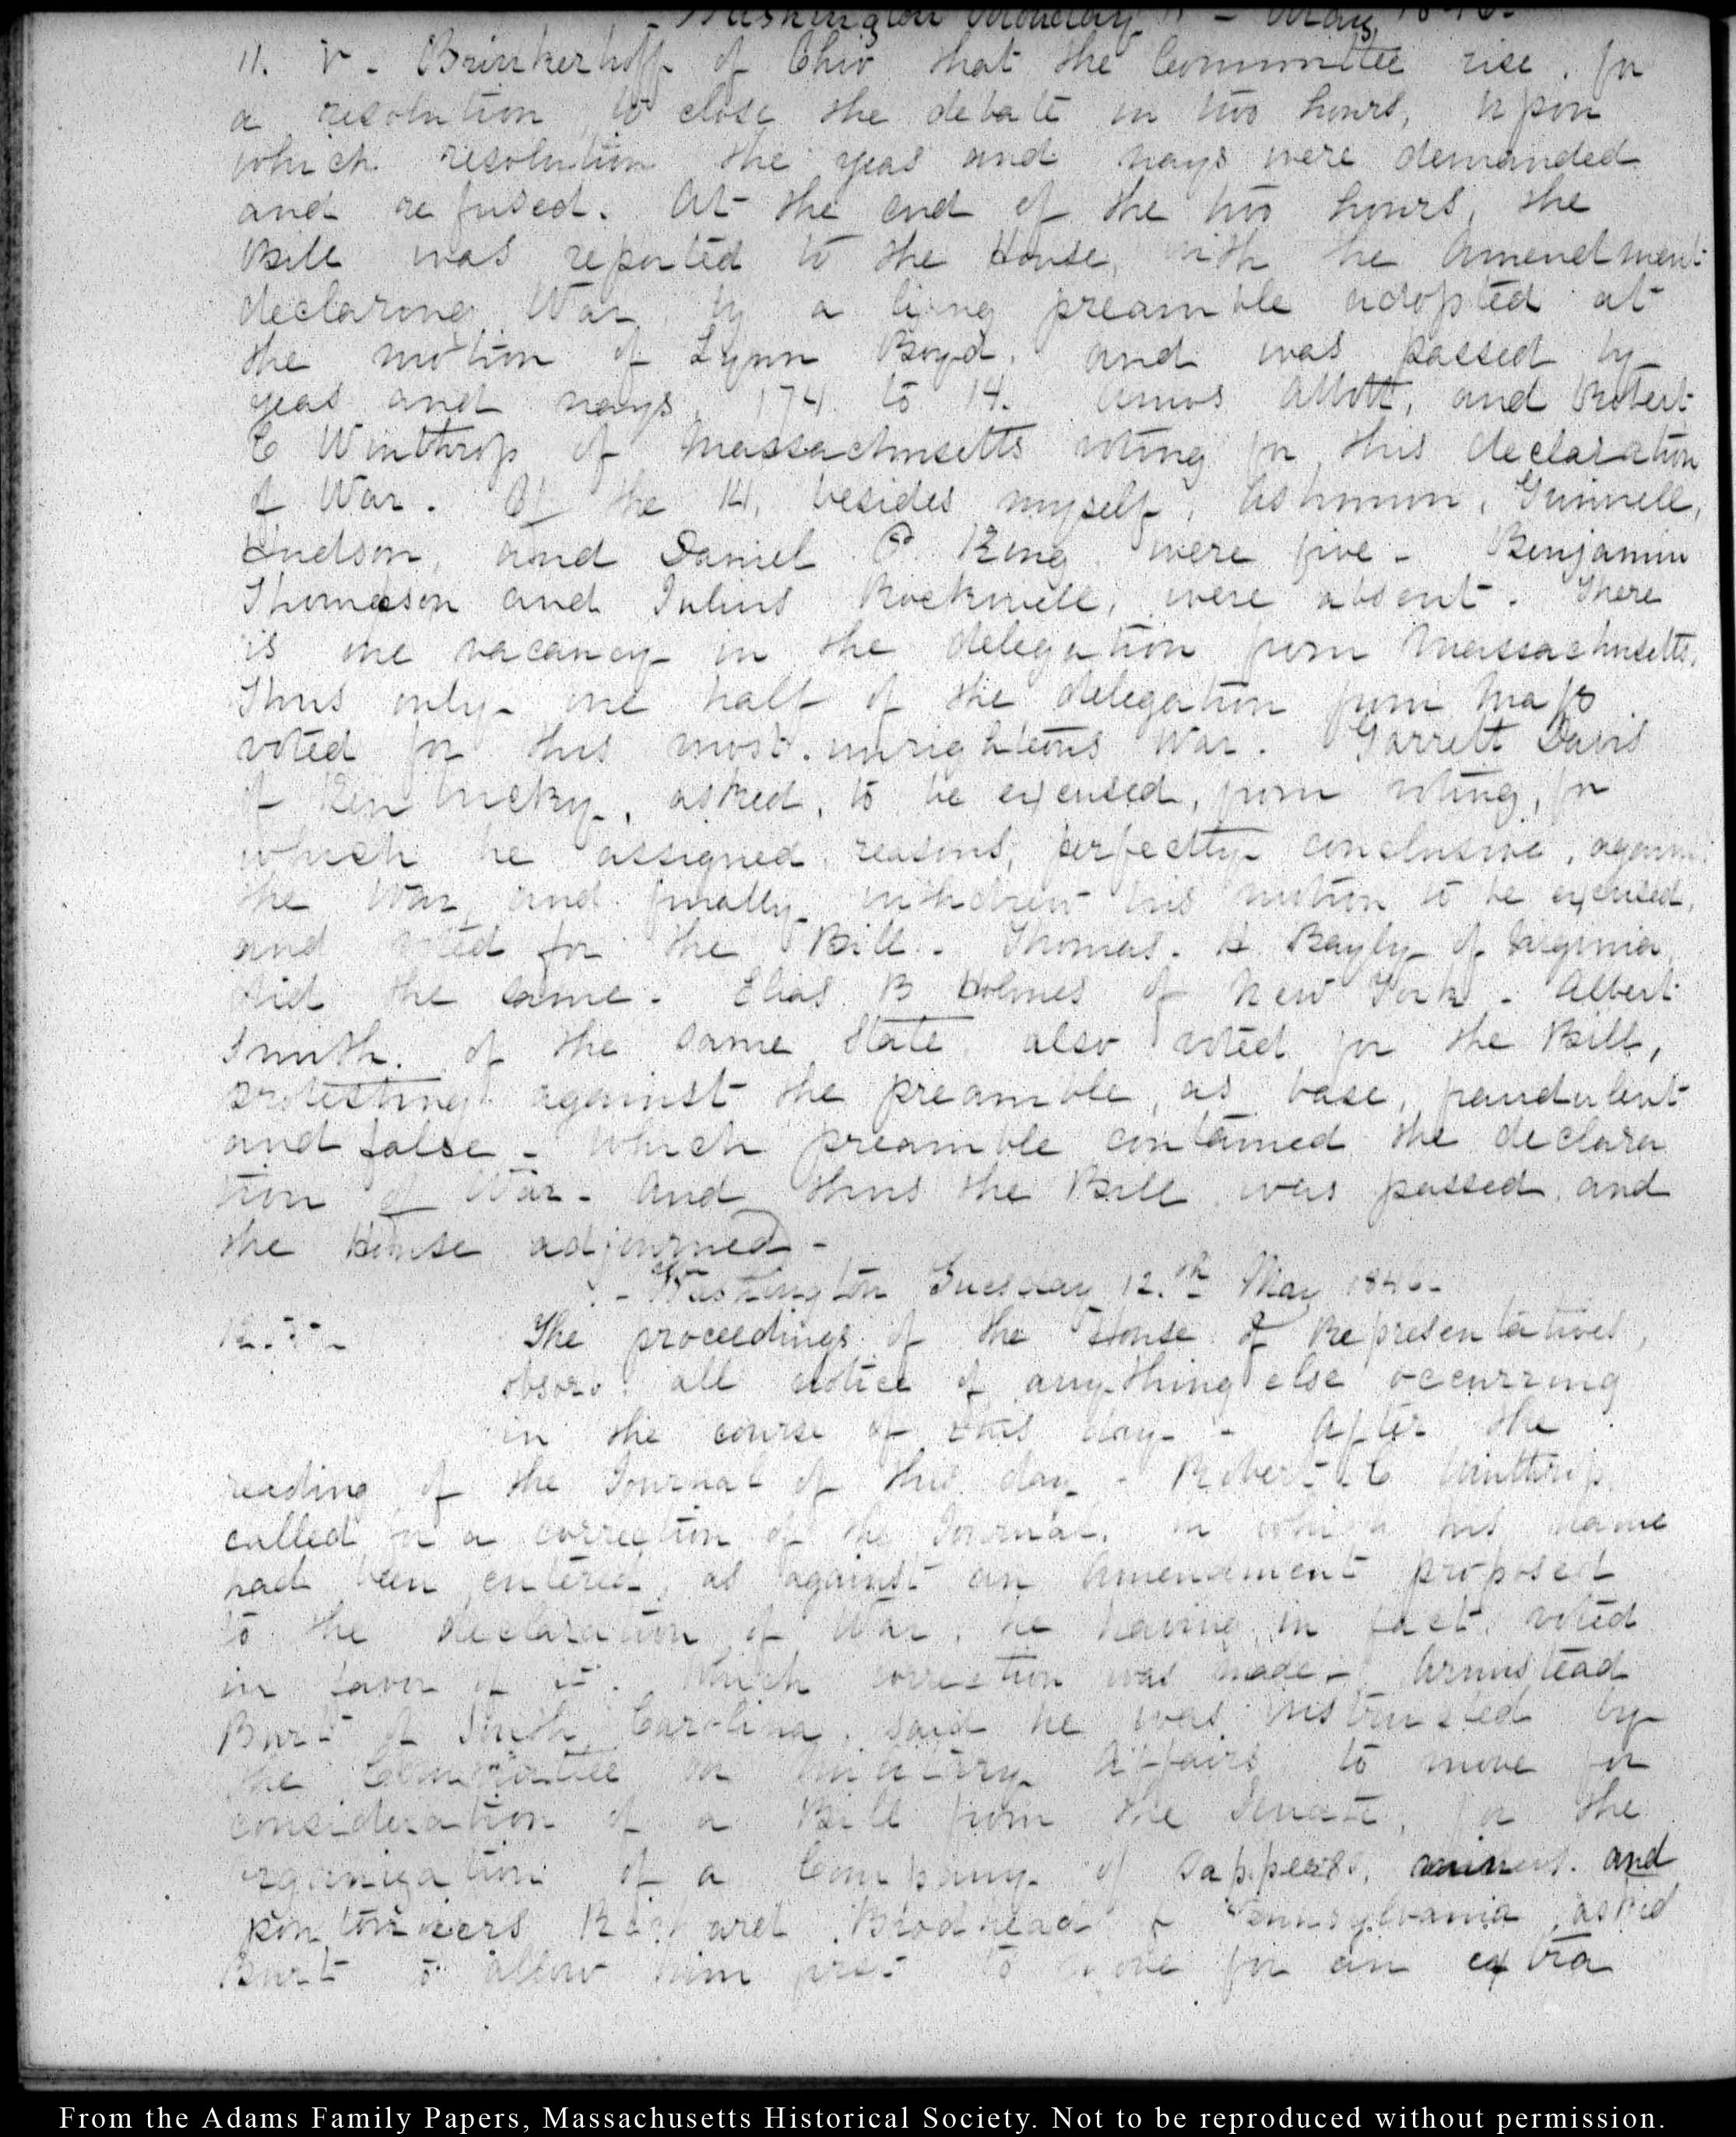 - Washington Monday 11 - May 1846-
11. V - Brinkerhoff of Ohio that the Committee rise, for
a resolution to close the debate in two hours, upon
which resolution the yeas and nays were demanded
and refused. At the end of the two hours, the
Bill was reported to the House, with the Amendment
declaring War by a lying preamble adopted at
the motion of Lynn Boyd, and was passed by
yeas and nays, 174 to 14. Amos Abbott, and Robert
C Winthrop of Massachusetts voting for this declaration
of War. Of the 14, besides myself, Ashmun, Grinnell,
Hudson, and Daniel P. King were five - Benjamin
Thompson and Julius Rockwell, were absent. There
is one vacancy in the delegation from Massachusetts.
Thus only one half of the delegation from Mass
voted for this most unrighteous War. Garrett Davis
of Kentucky, asked, to be excused, from voting, for
which he assigned reasons, perfectly conclusive, against
the War, and finally withdrew his motion to be excused,
and voted for the Bill - Thomas. H. Bayly of Virginia
did the same - Elias B Holmes of New York - Albert
Smith. of the same State also voted for the Bill,
protesting against the preamble, as base, fraudulent
and false - which preamble contained the declara
tion of War - And thus the Bill was passed, and
the House adjourned -
- Washington Tuesday 12.th May 1846-
12. -
The proceedings of the House of Representatives,
absorb all notice of anything else occurring
in the course of this day - After the
reading of the Journal of this day - Robert C Winthrop
called for a correction of the Journal, in which his name
had been entered, as against an Amendment proposed
to the declaration of War, he having in fact, voted
in favor of it. Which correction was made - Armistead
Burt of South Carolina, said he was instructed by
the Committee on Military Affairs, to move for
consideration of a Bill from the Senate, for the
organization of a Company of sappers, miners. and
pontoniers Richard Brodhead of Pennsylvania, asked
Burt to allow him first to move for an extra
From the Adams Family Papers, Massachusetts Historical Society. Not to be reproduced without permission.